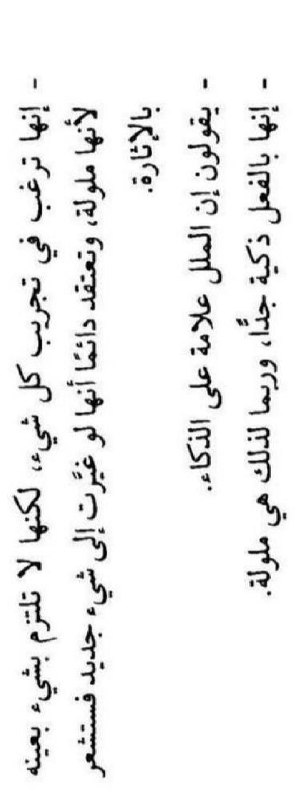 - إنها ترغب في تجريب كل شيء، لكنها لا تلتزم بشيء بعينه
لأنها ملولة، وتعتقد دائمًا أنها لو غيَّرت إلى شيء جديد فستشعر
بالإثارة.
- يقولون إن الملل علامة على الذكاء.
- إنها بالفعل ذكية جدًّا، وربما لذلك هي ملولة.